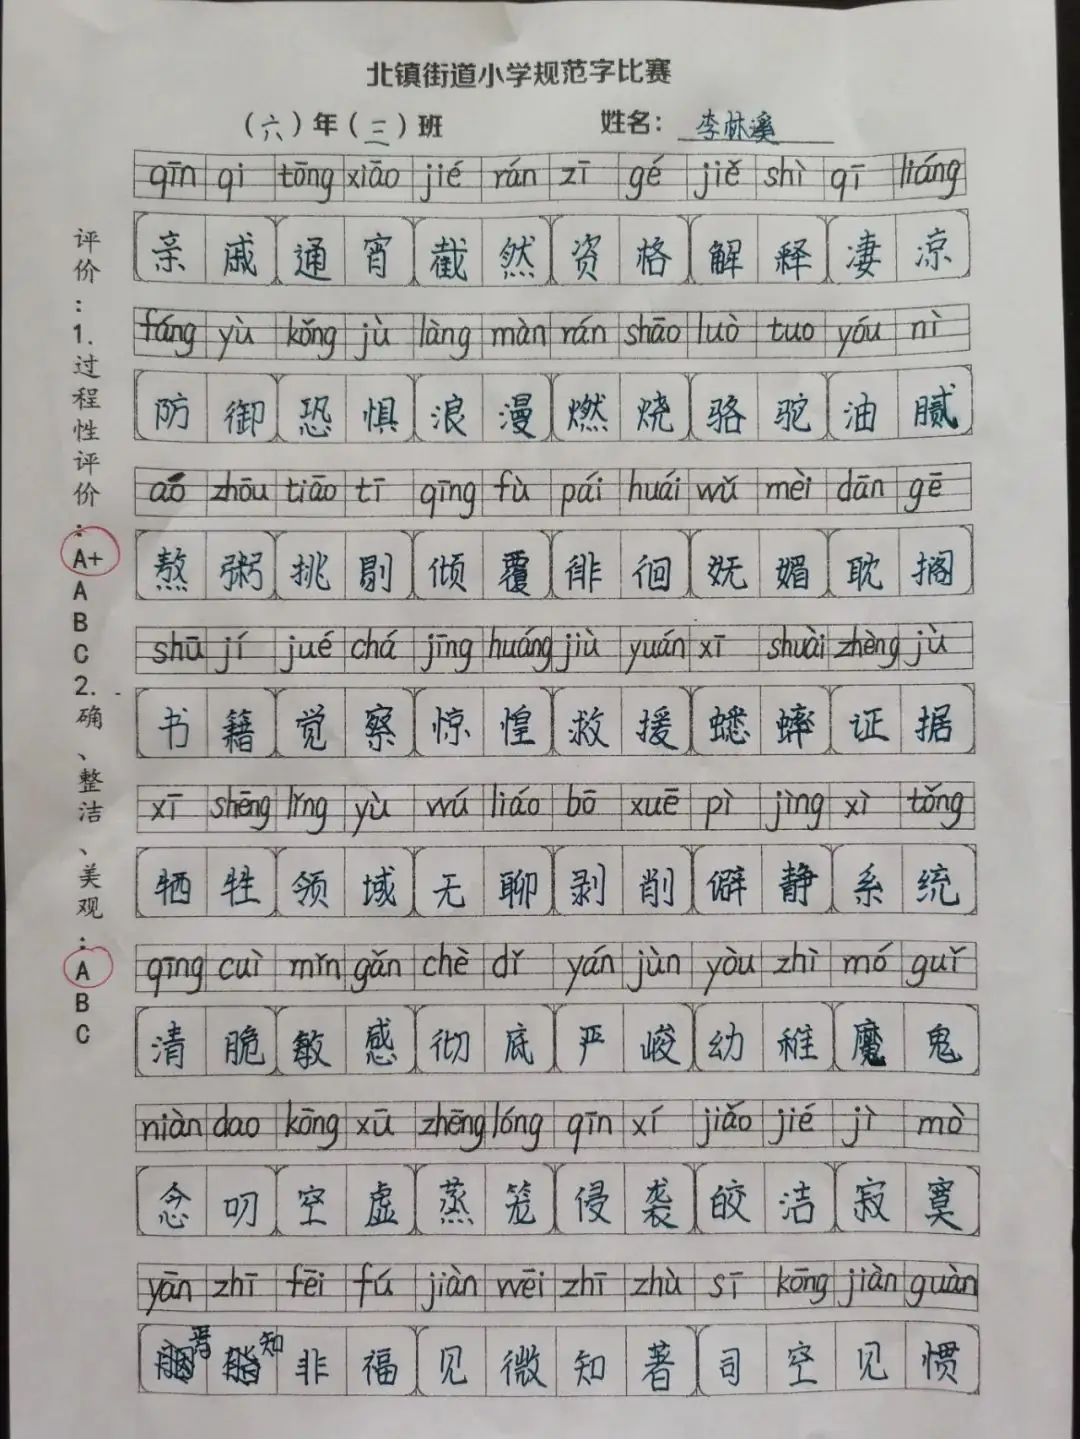 北镇街道小学规范字比赛
（六）年（三）班 姓名：李林溪
qīn qi tōng xiāo jié rán zī gé jiě shì qī liáng
亲戚通宵截然资格解释凄凉
fáng yù kǒng jù làng màn rán shāo luò tuo yóu nì
防御恐惧浪漫燃烧骆驼油腻
áo zhōu tiāo tī qīng fù pái huái wǔ mèi dān gē
熬粥挑剔倾覆徘徊妩媚耽搁
shū jí jué chá jīng huáng jiù yuán xī shuài zhèng jù
书籍觉察惊惶救援蟋蟀证据
xī shēng lǐng yù wú liáo bō xuē pì jìng xì tǒng
牺牲领域无聊剥削僻静系统
qīng cuì mǐn gǎn chè dǐ yán jùn yòu zhì mó guǐ
清脆敏感彻底严峻幼稚魔鬼
niàn dao kōng xū zhēng lóng qīn xí jiǎo jié jì mò
念叨空虚蒸笼侵袭皎洁寂寞
yān zhī fēi fú jiàn wēi zhī zhù sī kōng jiàn guàn
非福见微知著司空见惯
评价：1.过程性评价：A+ A B C 2. 确、整洁、美观：A B C